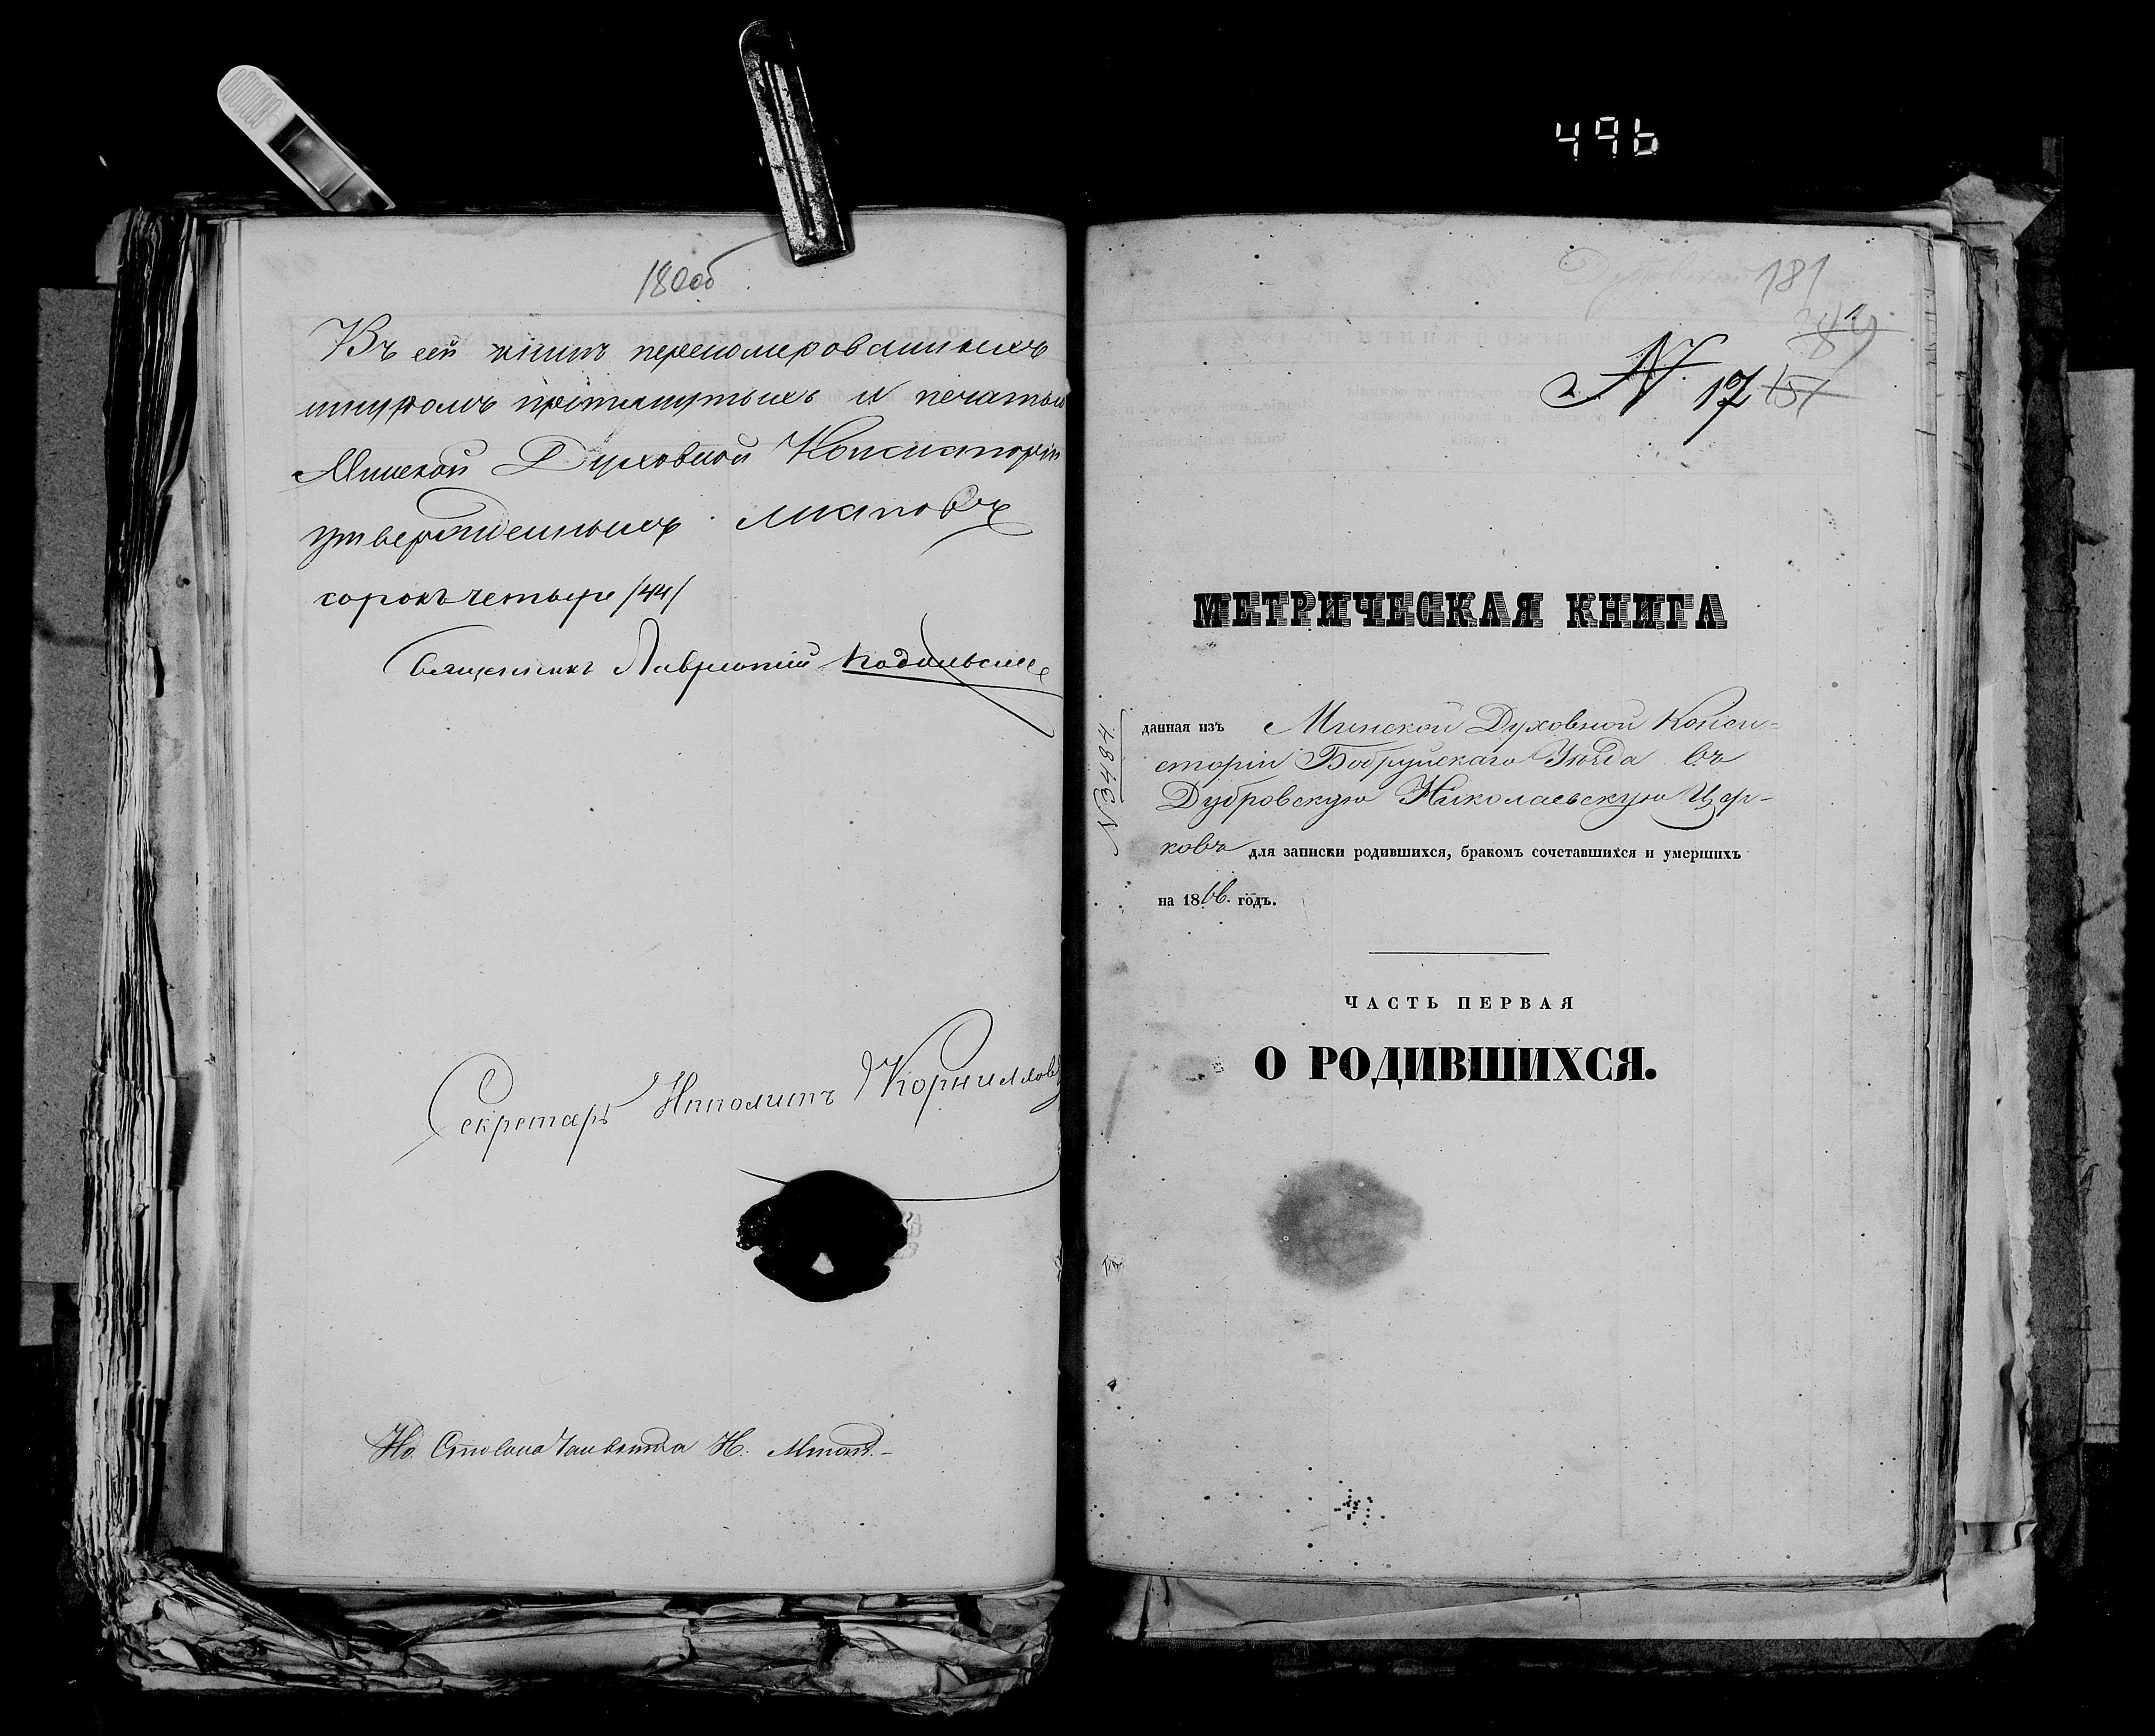 180об
Въ сей книгѣ переномерованныхъ
шнуромъ протянутыхъ и печатью
Минской Духовной Консисторіи
утвержденныхъ листовъ
сорокъ четыре /44/
Священникъ Лаврентій
Секретарь Ипполитъ Корниллов
496
181
№ 17 151
МЕТРИЧЕСКАЯ КНИГА
№ 3484
данная изъ Минской Духовной Конси-
сторіи Бобруйскаго Уѣзда въ
Дубровскую Николаевскую Цер-
ковь для записки родившихся, бракомъ сочетавшихся и умершихъ
на 1866. годъ.
ЧАСТЬ ПЕРВАЯ
О РОДИВШИХСЯ.